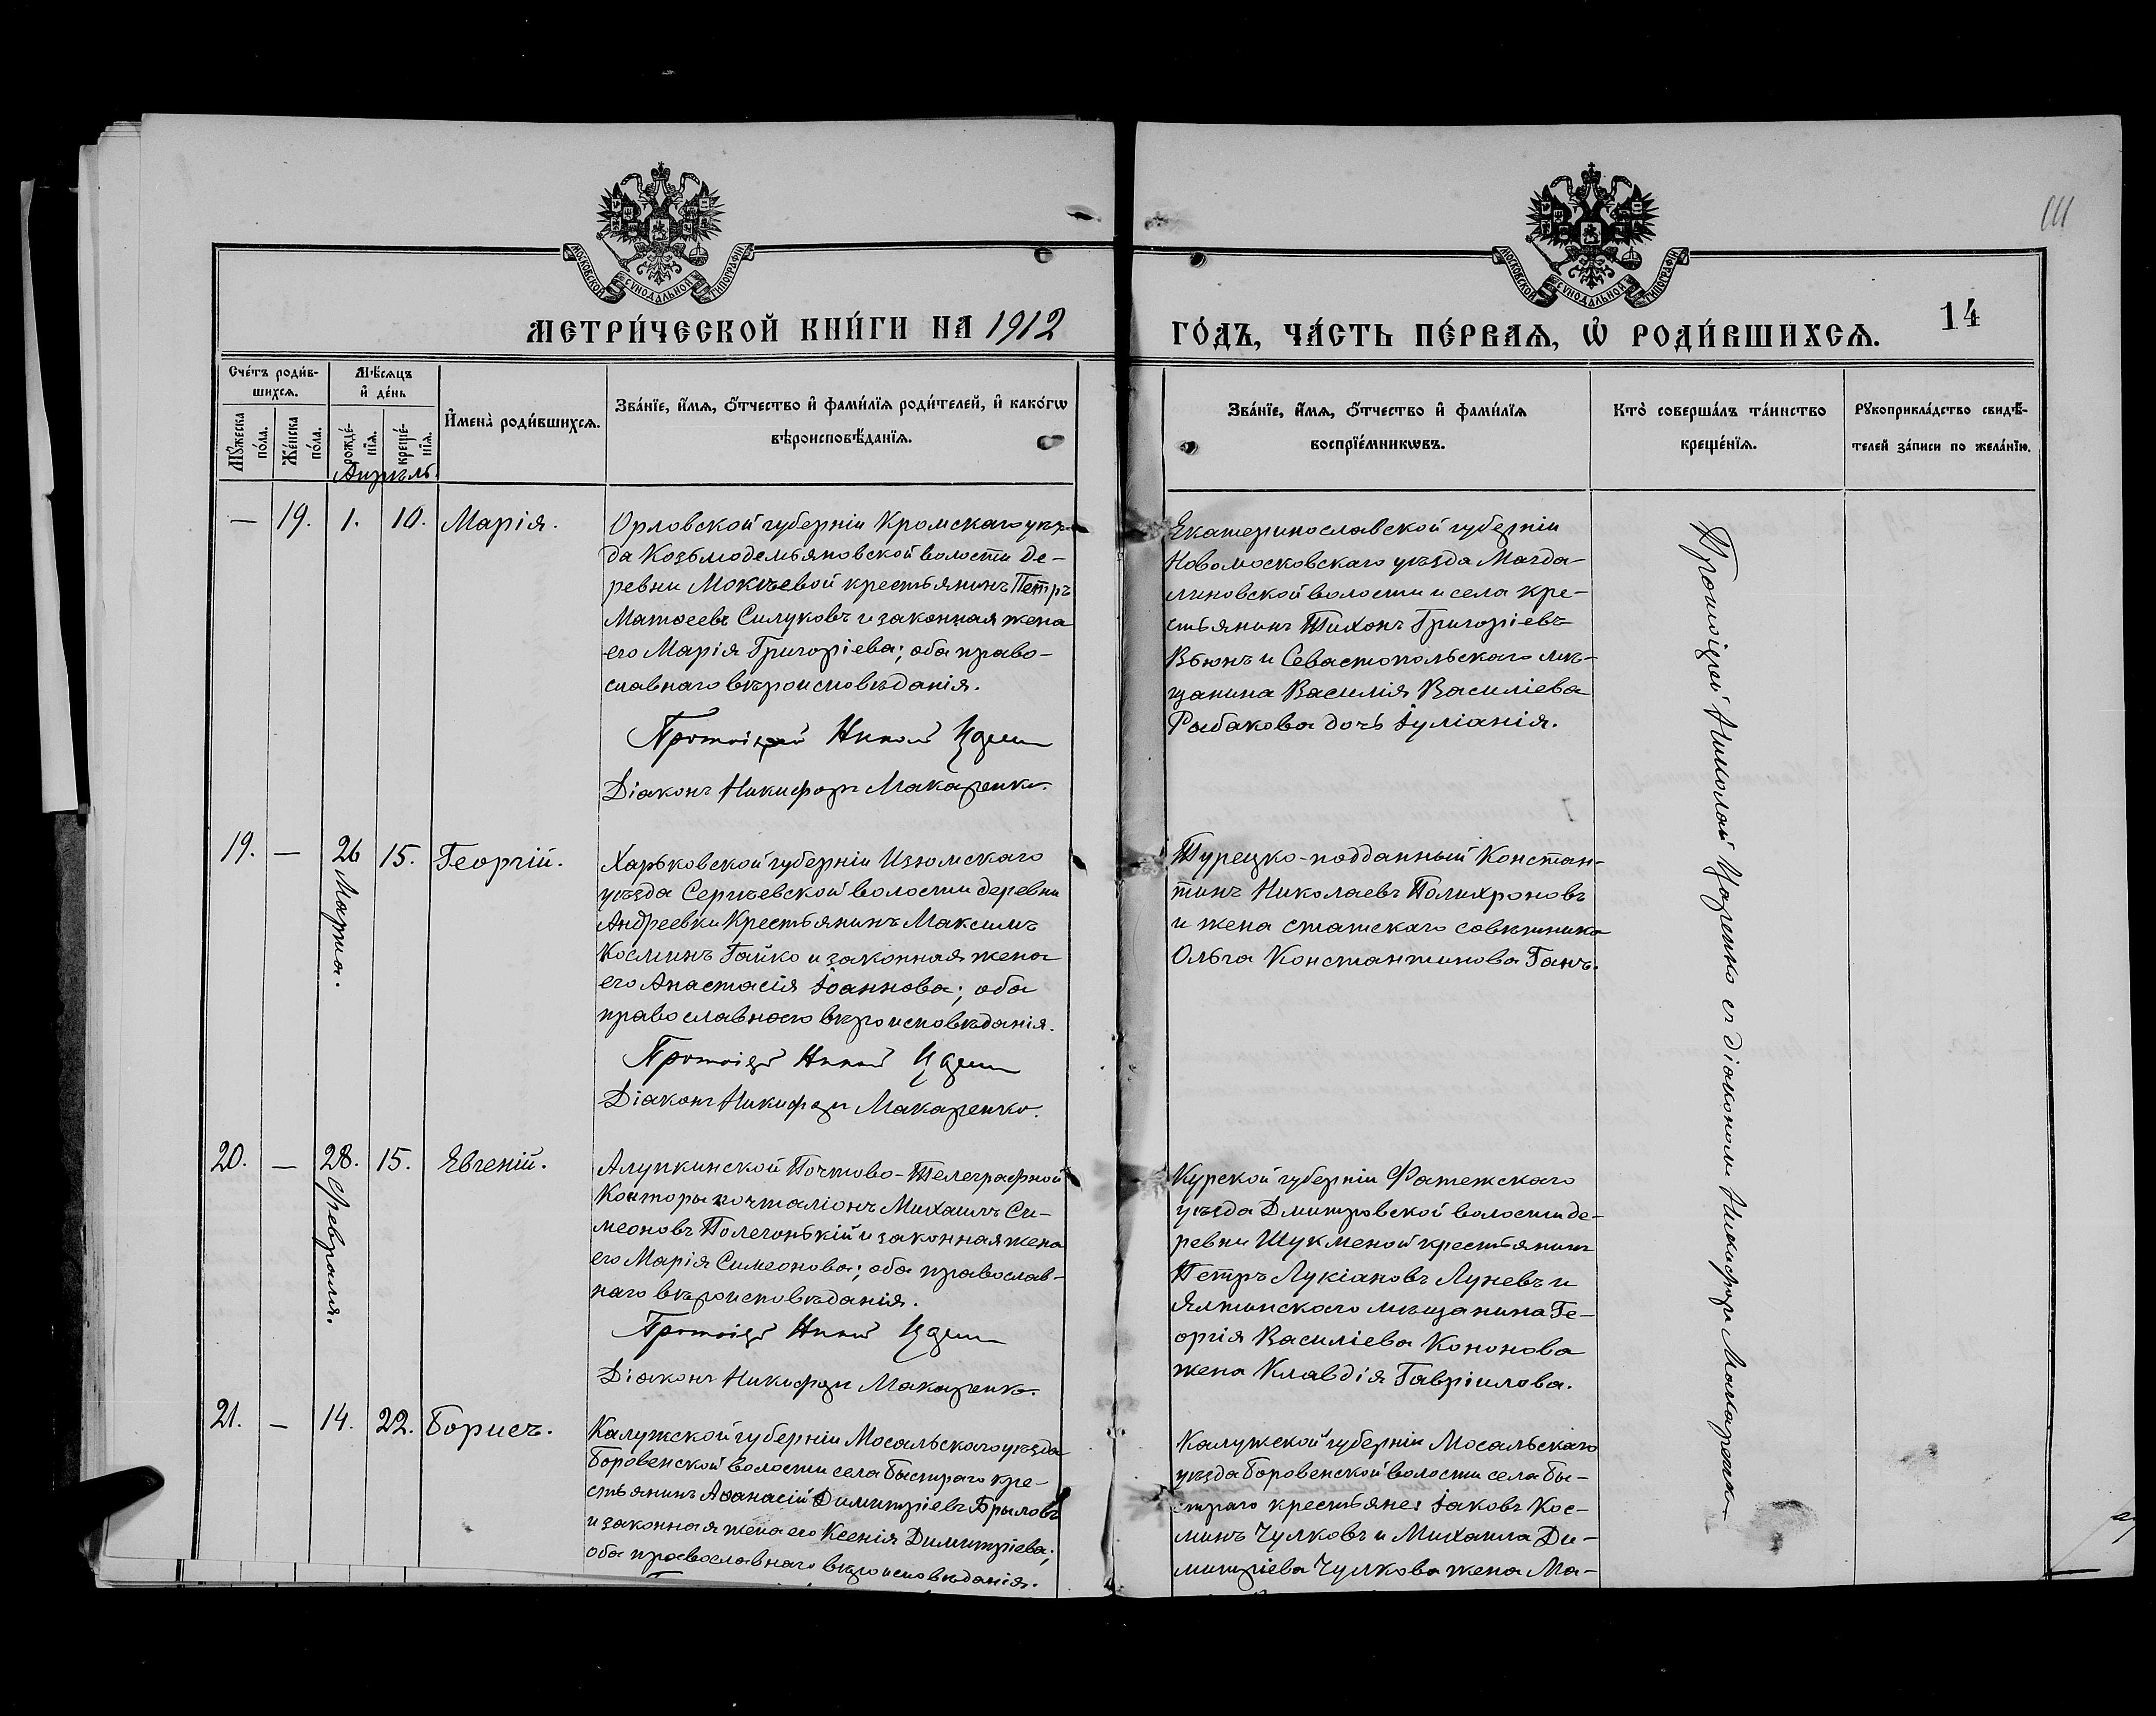 111
МОСКОВСКОЙ СѴНОДАЛЬНОЙ ТИПОГРАФІИ
МОСКОВСКОЙ СѴНОДАЛЬНОЙ ТИПОГРАФІИ
МЕТРИ́ЧЕСКОЙ КНИ́ГИ НА 1912
ГО́ДЪ, ЧА́СТЬ ПЕ́РВАѦ, Ѡ҆ РОДИ́ВШИХСѦ.
14
Сче́тъ роди́в-
шихсѧ.
Мꙋ́жеска
по́ла.
Же́нска
по́ла.
Мѣ́сѧцъ
и҆ де́нь
рожде́-
нїѧ.
креще́-
нїѧ.
Апрѣль.
И҆мена̀ роди́вшихсѧ.
Зва́нїе, и҆́мѧ, ѻ҆́тчество и҆ фами́лїѧ роди́телей, и҆ како́гѡ
вѣроисповѣ́данїѧ.
Зва́нїе, и҆́мѧ, ѻ҆́тчество и҆ фами́лїѧ
воспрїе́мникѡвъ.
Кто̀ соверша́лъ та́инство
креще́нїѧ.
Рꙋкоприкла́дство свидѣ́-
телей за́писи по жела́нїю.
— 19. 1. 10. Марія.
Орловской губерніи Кромскаго уѣз-
да Козьмодемьяновской волости де-
ревни Мокѣевой крестьянинъ Петръ
Матѳеевъ Силуковъ и законная жена
его Марія Григоріева; оба право-
славнаго вѣроисповѣданія.
Протоіерей Николай
Діаконъ Никифоръ Макаренко.
Екатеринославской губерніи
Новомосковскаго уѣзда Магда-
линовской волости и села кре-
стьянинъ Тихонъ Григоріевъ
Вьюнъ и Севастопольскаго мѣ-
щанина Василія Василіева
Рыбакова дочь Іуліанія.
19. — 26 Марта. 15. Георгій.
Харьковской губерніи Изюмскаго
уѣзда Серіѣевской волости деревни
Андреевки Крестьянинъ Максимъ
Косминъ Гайко и законная жена
его Анастасія Іоаннова; оба
православнаго вѣроисповѣданія.
Протоіерей Николай
Діаконъ Никифоръ Макаренко.
Турецко-подданный Констан-
тинъ Николаевъ Полихроновъ
и жена статскаго совѣтника
Ольга Константинова Ганъ.
20. — 28. Февраля. 15. Евгеній.
Алупкинской Почтово-Телеграфной
Конторы почталіонъ Михаилъ Си-
меоновъ Полегонькій и законная жена
его Марія Симеонова; оба православ-
наго вѣроисповѣданія.
Протоіерей Николай
Діаконъ Никифоръ Макаренко.
Курской губерніи Фатежскаго
уѣзда Дмитровской волости де-
ревни Шукменой крестьянинъ
Петръ Лукіановъ Луневъ и
Ялтинскаго мѣщанина Ге-
оргія Василіева Кононова
жена Клавдія Гавріилова.
21. — 14. 22. Борисъ.
Калужской губерніи Мосальскаго уѣзда
Боровенской волости села Быстраго кре-
стьянинъ Аѳанасій Димитріевъ Брыловъ
и законная жена его Ксенія Димитріева;
оба православнаго вѣроисповѣданія.
Калужской губерніи Мосальскаго
уѣзда Боровенской волости села Бы-
страго крестьяне: Іаковъ Кос-
минъ Чулковъ и Михаила Ди-
митріева Чулкова жена Ма-
Протоіерей Николай Царенко съ діакономъ Никифоромъ Макаренко